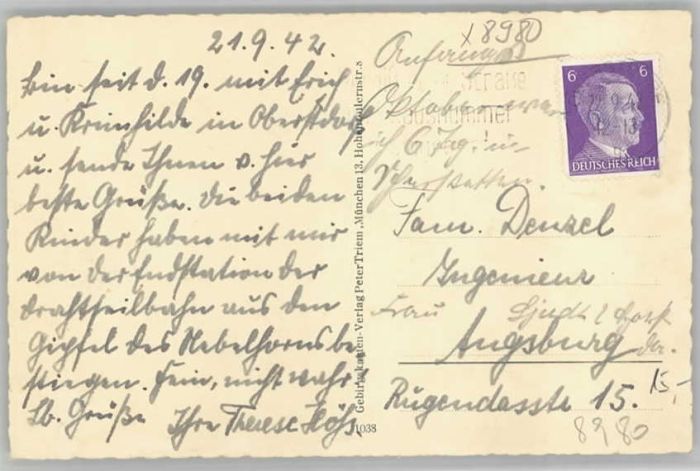 21.9.42.
Bin seit d. 19. mit Erich
u. Krimhilde in Oberstdorf
u. sende Ihnen v. hier
beste Grüße. Die beiden
Kinder haben mit mir
von der Endstation der
Drahtseilbahn aus den
Gipfel des Nebelhorns be-
stiegen. Fein, nicht wahr?
Lb. Grüße Ihre Therese
Gebirgskarten-Verlag Peter Triem, München 13, Hohenzollernstr. 8
1038
x8980
Anfangs
Oktober war
ich 6 Tag. in
6 6
DEUTSCHES REICH
Fam. Denzel
Ingenieur
Frau
Augsburg
Rugendasstr 15.
15,-
8980